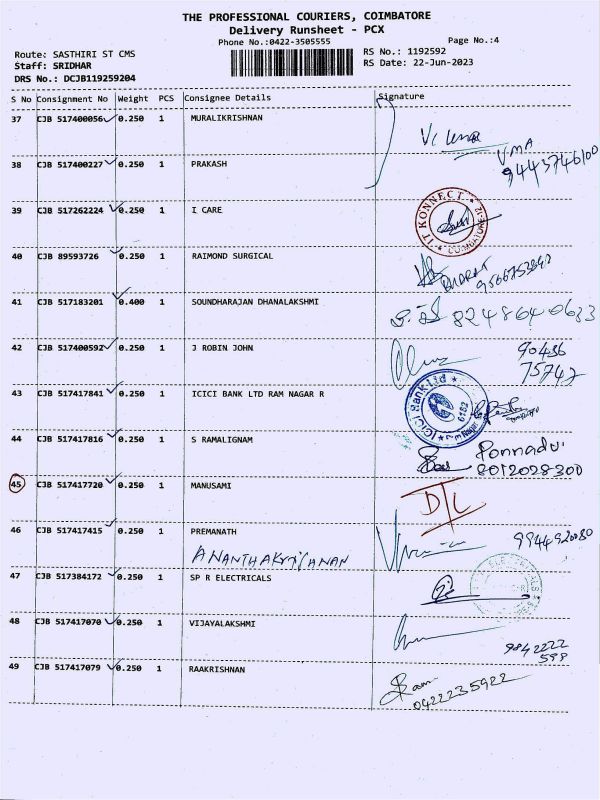 THE PROFESSIONAL COURIERS, COIMBATORE
Delivery Runsheet - PCX
Phone No.:0422-3505555 Page No.:4
Route: SASTHIRI ST CMS RS No.: 1192592
Staff: SRIDHAR RS Date: 22-Jun-2023
DRS No.: DCJB119259204
S No Consignment No Weight PCS Consignee Details Signature
37 CJB 517400056 0.250 1 MURALIKRISHNAN
VMA
9443746100
38 CJB 517400227 0.250 1 PRAKASH
39 CJB 517262224 0.250 1 I CARE
IT KONNECT COIMBATORE-12
40 CJB 89593726 0.250 1 RAIMOND SURGICAL
BHARAT
41 CJB 517183201 0.400 1 SOUNDHARAJAN DHANALAKSHMI
8248640633
42 CJB 517400592 0.250 1 J ROBIN JOHN
90436
75742
43 CJB 517417841 0.250 1 ICICI BANK LTD RAM NAGAR R
ICICI Bank Ltd 6152 Ram Nagar
44 CJB 517417816 0.250 1 S RAMALIGNAM
Ponnadui
8012028300
45 CJB 517417720 0.250 1 MANUSAMI
D/L
46 CJB 517417415 0.250 1 PREMANATH
9944920080
ANANTHAKRISHNAN
47 CJB 517384172 0.250 1 SP R ELECTRICALS
ELECTRICALS
48 CJB 517417070 0.250 1 VIJAYALAKSHMI
9842222
599
49 CJB 517417079 0.250 1 RAAKRISHNAN
Ram
0422235922